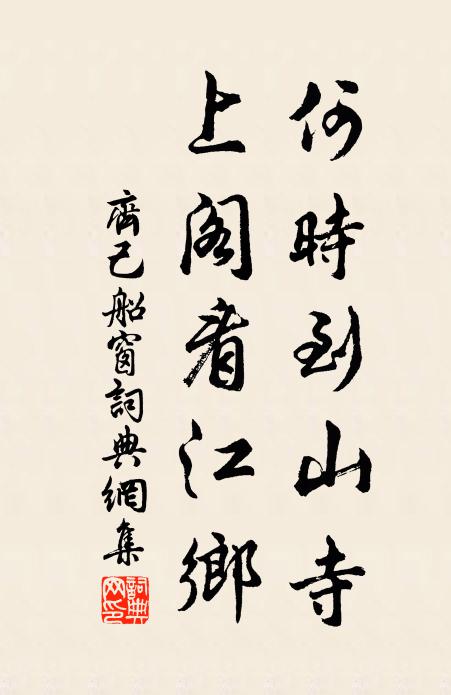 何時到山寺
上阁看江鄉
齊己船窗詞典網集
詞典网印